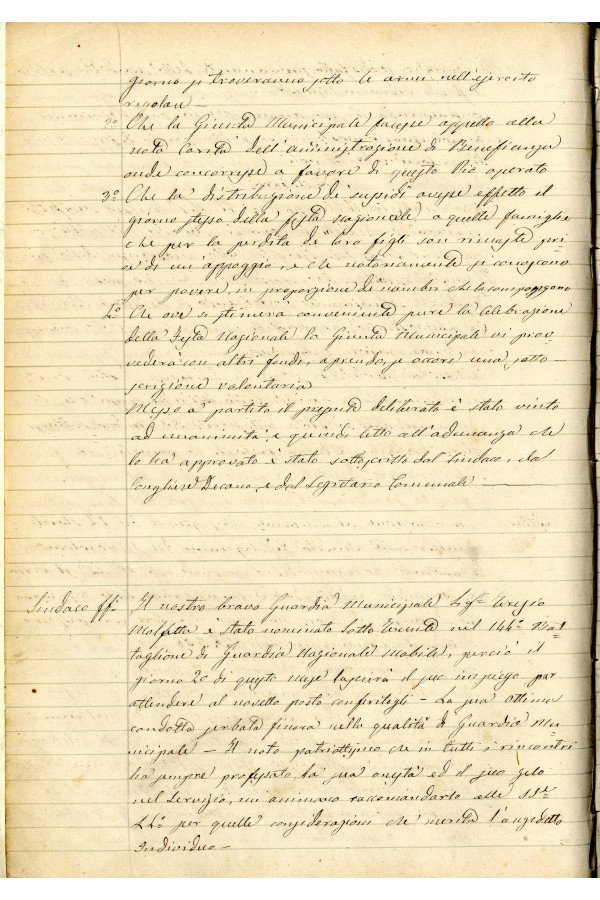 giorno si troveranno sotto le armi nell'esercito
regolare —
2º Che la Giunta Municipale facesse appello alla
nota Carità dell'amministrazione di Beneficenza
onde concorresse a favore di questo Pio operato
3º Che la distribuzione de' sussidi avesse effetto il
giorno stesso della festa Nazionale a quelle famiglie
che per la perdita de' loro figli son rimaste pri
ve di un'appoggio, e che notoriamente si conoscono
per povere, in proporzione di membri che la compongono
4º Che ove si stimerà conveniente pure la celebrazione
della Festa Nazionale la Giunta Municipale vi prov-
vederà con altri fondi, aprendo, se occorre una sotto-
scrizione valontaria
Messo a partito il presente deliberato è stato vinto
ad unanimità, e quindi letto all'adunanza che
lo ha approvato è stato sottoscritto dal Sindaco, dal
Consigliere Decano, e dal Segretario Comunale —
Sindaco ff. Il nostro bravo Guardia Municipale Sigr. Terezio
Molfetta è stato nominato Sotto Tenente nel 144º Bat-
taglione di Guardia Nazionale Mobile, perciò il
giorno 20 di questo mese lascerà il suo impiego per
attendere al novello posto confertogli — La sua ottima
condotta serbata finora nella qualità di Guardia Mu-
nicipale — Il noto patriottismo che in tutti i rincontri
ha sempre professato, la sua onestà ed il suo zelo
nel Servizio, mi animano raccomandarlo alle SS.
LL. per quelle considerazioni che merita l'anzidetto
Individuo —